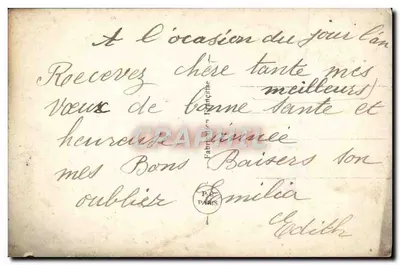 A l'ocasion du jour l'an
Recevez chère tante mis
meilleurs
vœux de bonne santé et
heureuse année
mes Bons Baisers son
oublier Emilia
Edith
Fabrication Française
PARIS